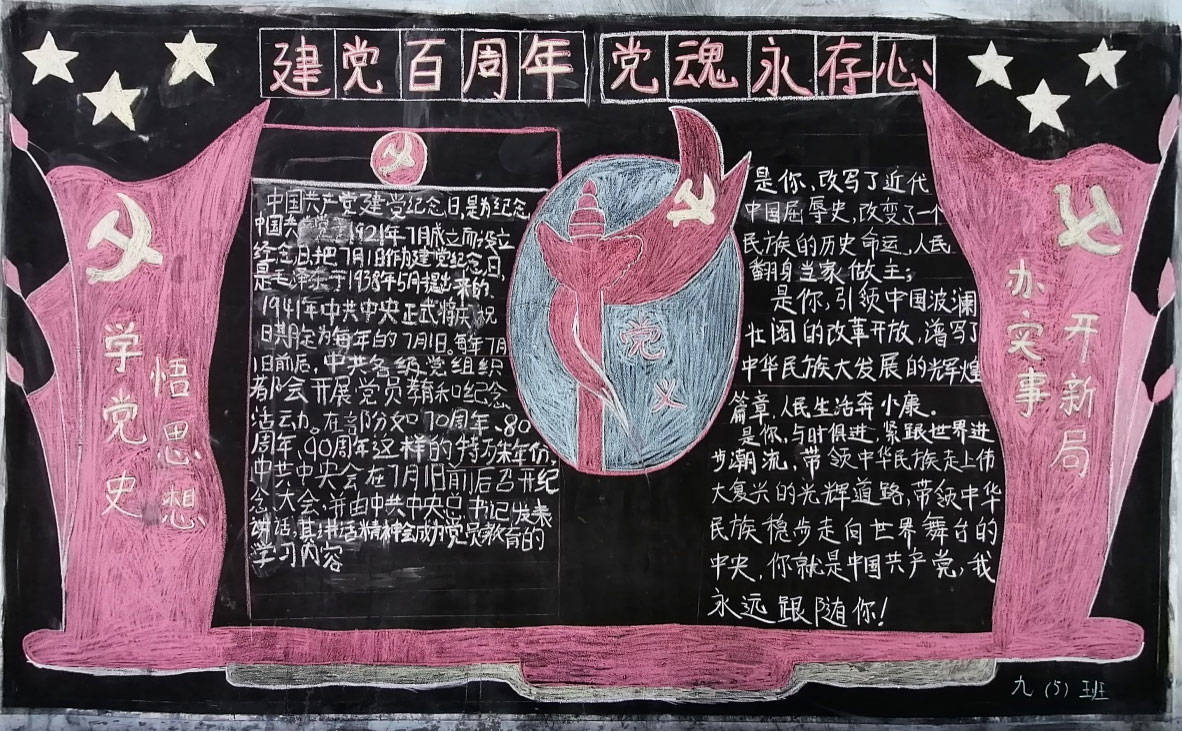 建党百周年 党魂永存心
学党史
悟思想
中国共产党建党纪念日,是为纪念
中国共产党于1921年7月成立而设立
纪念日,把7月1日作为建党纪念日,
是毛泽东于1938年5月提出来的,
1941年中共中央正式将庆祝
日期定为每年的7月1日。每年7月
1日前后,中共各级党组织
都会开展党员教育和纪念
活动。在部份如70周年、80
周年、90周年这样的特殊年份
中共中央会在7月1日前后召开纪
念大会,并由中共中央总书记发表
讲话,其讲话精神会成为党员教育的
学习内容
党
义
是你,改写了近代
中国屈辱史,改变了一个
民族的历史命运,人民
翻身当家做主;
是你,引领中国波澜
壮阔的改革开放,谱写了
中华民族大发展的光辉煌
篇章,人民生活奔小康.
是你,与时俱进,紧跟世界进
步潮流,带领中华民族走上伟
大复兴的光辉道路,带领中华
民族稳步走向世界舞台的
中央,你就是中国共产党,我
永远跟随你!
办实事
开新局
九(5)班